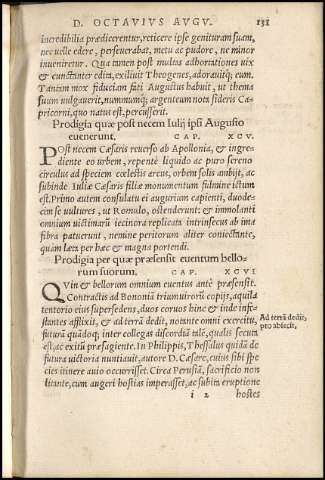 D. OCTAVIUS AUGU. 131
incredibilia prædicerentur, reticere ipse genituram suam,
nec uelle edere, perseuerabat, metu ac pudore, ne minor
inueniretur. Qua tamen post multas adhortationes uix
& cunctanter edita, exiliuit Theogenes, adorauitq; eum.
Tantam mox fiduciam fati Augustus habuit, ut thema
suum uulgauerit, nummumq; argenteum nota sideris Ca-
pricorni, quo natus est, percusserit.
Prodigia quæ post necem Iulij ipsi Augusto
euenerunt. CAP. XCV.
POst necem Cæsaris reuerso ab Apollonia, & ingre-
diente eo urbem, repente liquido ac puro sereno
circulus ad speciem cœlestis arcus, orbem solis ambijt, ac
subinde Iuliæ Cæsaris filiæ monumentum fulmine ictum
est. Primo autem consulatu ei augurium capienti, duode-
cim se uultures, ut Romulo, ostenderunt: & immolanti
omnium uictimarū iecinora replicata intrinsecus ab ima
fibra patuerunt, nemine peritorum aliter coniectante,
quàm læta per hæc & magna portendi.
Prodigia per quæ præsensit euentum bello-
rum suorum. CAP. XCVI
QVin & bellorum omnium euentus antè præsensit.
Contractis ad Bononiā triumuirorū copijs, aquila
tentorio eius supersedens, duos coruos hinc & inde infe-
stantes afflixit, & ad terrā dedit, notante omni exercitu,
futurā quādoq; inter collegas discordiā talē, qualis secuta
est, ac exitū præsagiente. In Philippis, Thessalus quidā de
futura uictoria nuntiauit, autore D. Cæsare, cuius sibi spe
cies itinere auio occurrisset. Circa Perusiā, sacrificio non
litante, cum augeri hostias imperasset, ac subita eruptione
i 2 hostes
Ad terrā dedit,
pro abiecit.